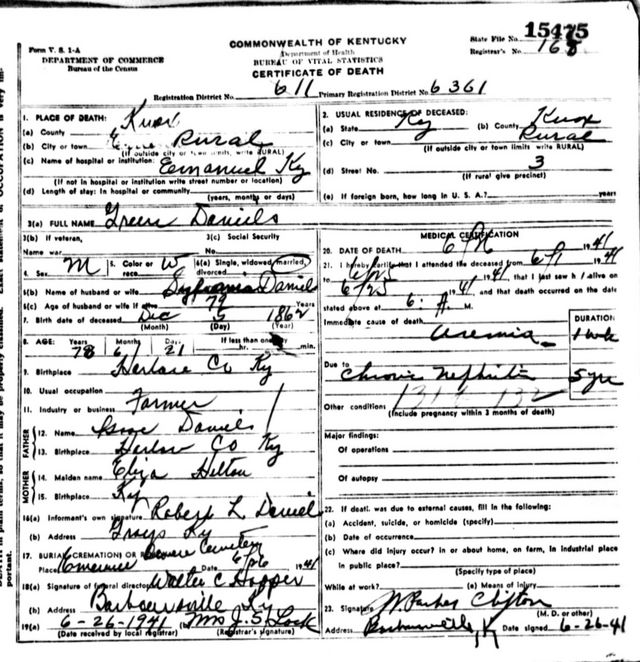 15475
COMMONWEALTH OF KENTUCKY
State File No.
Form V. S. 1-A
Department of Health
Registrar's No. 168
DEPARTMENT OF COMMERCE
BUREAU OF VITAL STATISTICS
Bureau of the Census
CERTIFICATE OF DEATH
Registration District No. 611 Primary Registration District No. 6361
1. PLACE OF DEATH:
(a) County Knox
(b) City or town Rural
(If outside city or town limits, write RURAL)
(c) Name of hospital or institution: Emanuel Ky
(If not in hospital or institution write street number or location)
(d) Length of stay: In hospital or community
(years, months or days)
2. USUAL RESIDENCE OF DECEASED:
(a) State Ky (b) County Knox
(c) City or town Rural
(If outside city or town limits write RURAL)
(d) Street No. 3
(If rural give precinct)
(e) If foreign born, how long in U. S. A.? years
3(a) FULL NAME Green Daniels
3(b) If veteran, 3(c) Social Security
Name war No.
4. Sex M 5. Color or race W 6(a) Single, widowed, married, divorced
6(b) Name of husband or wife Daniel
6(c) Age of husband or wife if alive 79 Years
7. Birth date of deceased Dec 5 1862
(Month) (Day) (Year)
8. AGE: Years Months Days If less than one day
78 6 21 hr. min.
9. Birthplace Co Ky
10. Usual occupation
11. Industry or business Farmer
FATHER
12. Name Daniels
13. Birthplace Co Ky
MOTHER
14. Maiden name Eliza Helton
15. Birthplace Ky
16(a) Informant's own signature Robert L Daniel
(b) Address Grays Ky
17. BURIAL (CREMATION) OR Cemetery
Place 6/26 1941
18(a) Signature of funeral director Walter C Hopper
(b) Address Barbourville Ky
19(a) 6-26-1941 Mrs J. S. Lock
(Date received by local registrar) (Registrar's signature)
MEDICAL CERTIFICATION
20. DATE OF DEATH 1941
21. I hereby certify that I attended the deceased from 6/1 1941
6/25 1941, that I last saw h / alive on
6/25 1941 and that death occurred on the date
stated above at 6: A. M.
Immediate cause of death DURATION
uremia 1 wk
Due to
Chronic Nephritis 5 yrs
Other conditions
(Include pregnancy within 3 months of death)
Major findings:
Of operations
Of autopsy
22. If death was due to external causes, fill in the following:
(a) Accident, suicide, or homicide (specify)
(b) Date of occurrence
(c) Where did injury occur? in or about home, on farm, in industrial place
in public place?
(Specify type of place)
While at work? (e) Means of injury
23. Signature W Parker Clifton
(M. D. or other)
Address Barbourville Ky Date signed 6-26-41